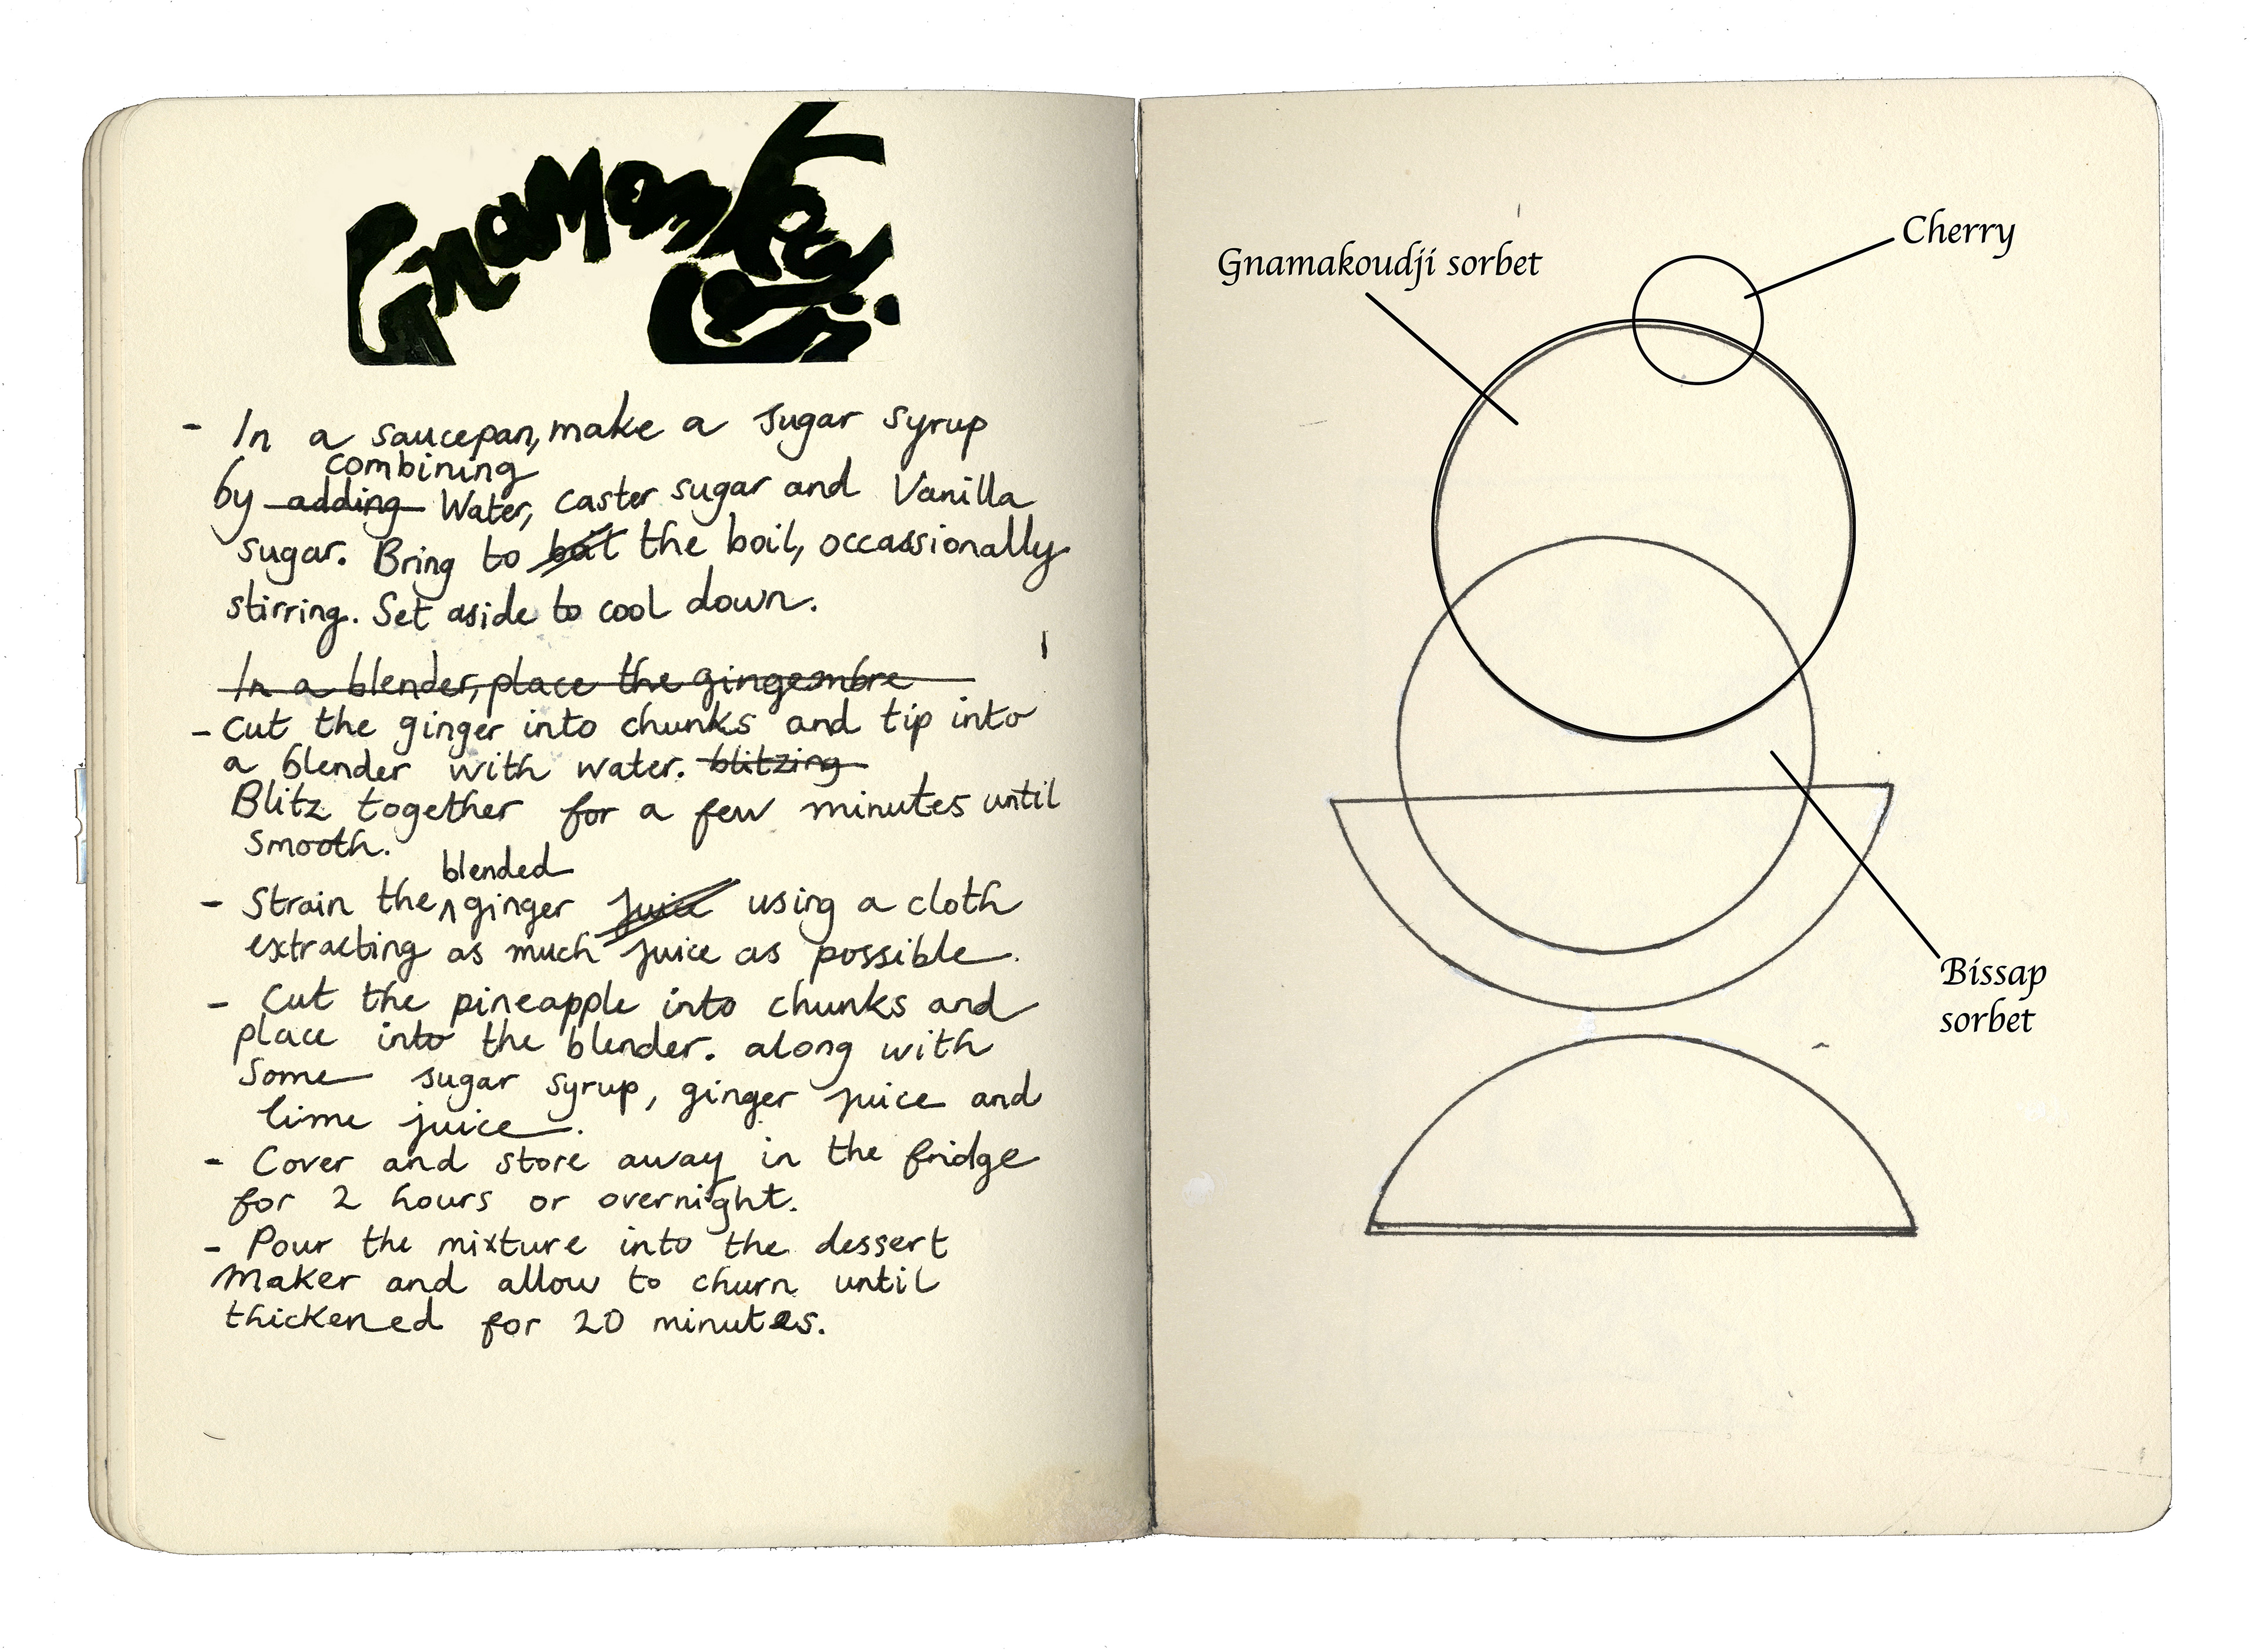 - In a saucepan, make a sugar syrup
combining
by adding Water, caster sugar and Vanilla
sugar. Bring to the boil, occassionally
stirring. Set aside to cool down.
In a blender, place the gingembre
- Cut the ginger into chunks and tip into
a blender with water. blitzing
Blitz together for a few minutes until
smooth.
blended
- Strain the ginger juice using a cloth
extracting as much juice as possible.
- Cut the pineapple into chunks and
place into the blender. along with
some sugar syrup, ginger juice and
lime juice.
- Cover and store away in the fridge
for 2 hours or overnight.
- Pour the mixture into the dessert
maker and allow to churn until
thickened for 20 minutes.
Cherry
Gnamakoudji sorbet
Bissap
sorbet